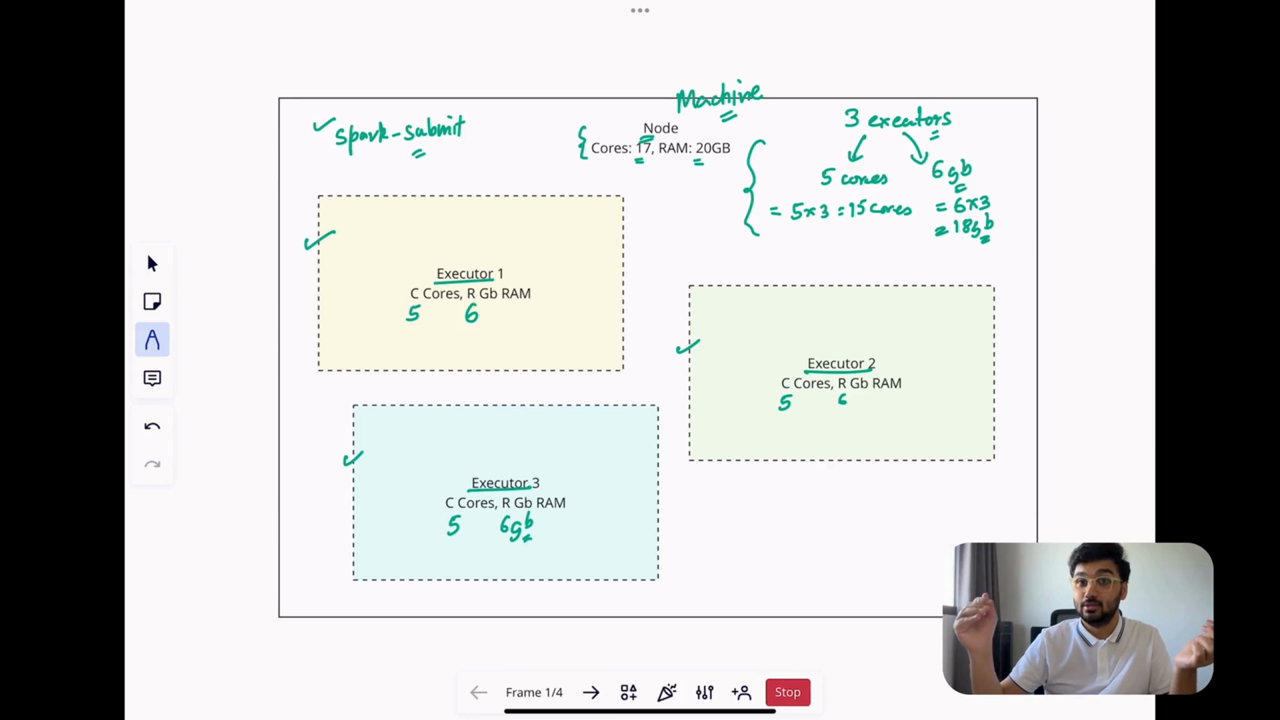 Machine
spark-submit
Node
Cores: 17, RAM: 20GB
3 executors
5 cores
6gb
= 5x3 = 15 cores
= 6x3
= 18gb
Executor 1
C Cores, R Gb RAM
5 6
Executor 2
C Cores, R Gb RAM
5 6
Executor 3
C Cores, R Gb RAM
5 6gb
Frame 1/4
Stop